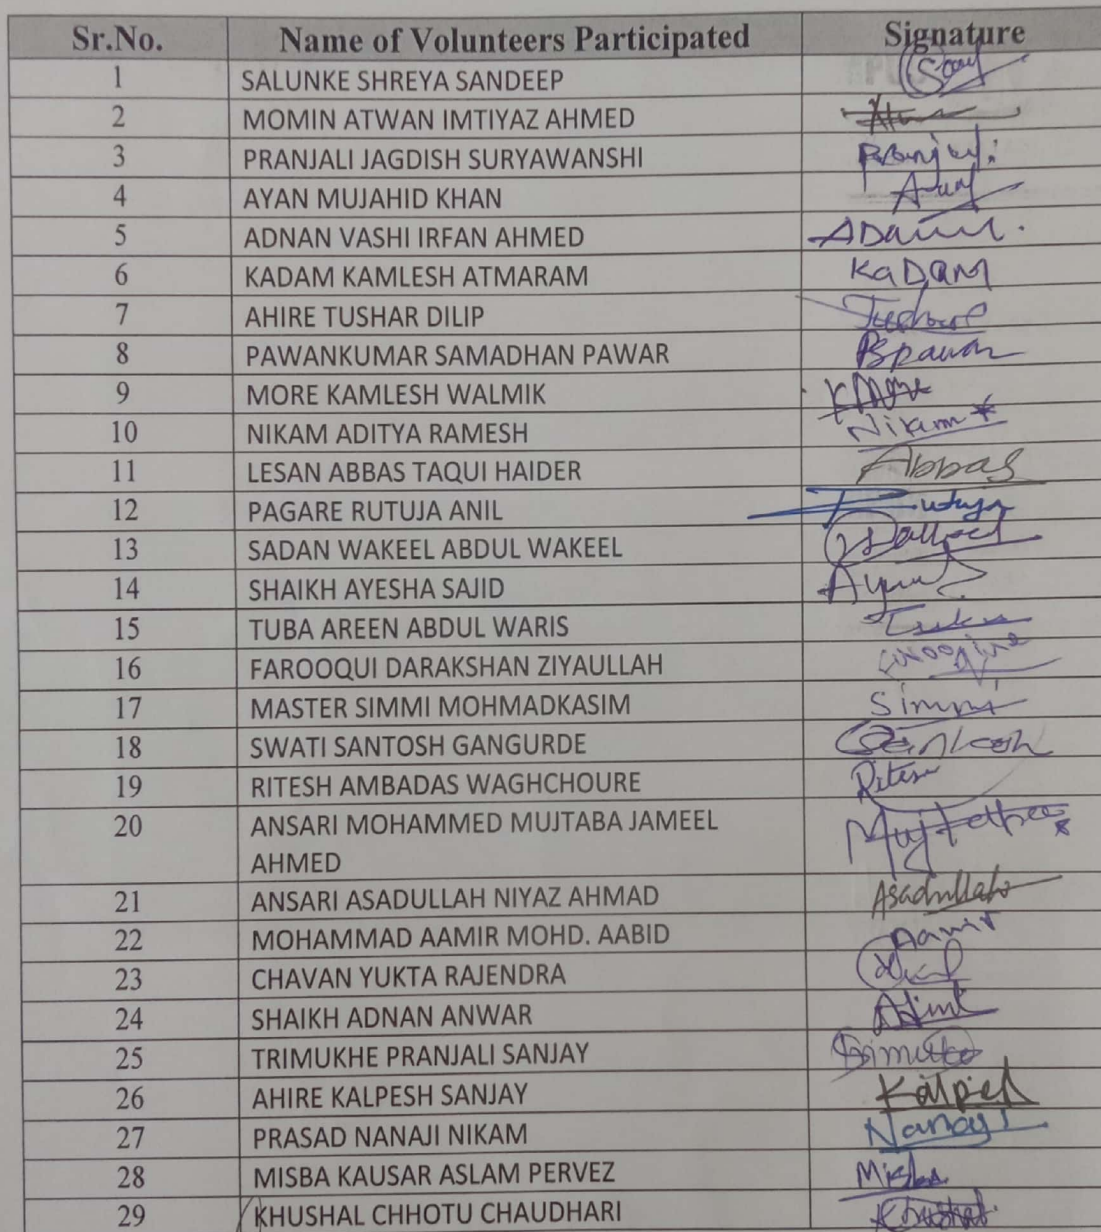 Sr.No. Name of Volunteers Participated Signature
1 SALUNKE SHREYA SANDEEP
2 MOMIN ATWAN IMTIYAZ AHMED
3 PRANJALI JAGDISH SURYAWANSHI
4 AYAN MUJAHID KHAN
5 ADNAN VASHI IRFAN AHMED
6 KADAM KAMLESH ATMARAM KaDAM
7 AHIRE TUSHAR DILIP
8 PAWANKUMAR SAMADHAN PAWAR Pspawar
9 MORE KAMLESH WALMIK
10 NIKAM ADITYA RAMESH Nikam
11 LESAN ABBAS TAQUI HAIDER Abbas
12 PAGARE RUTUJA ANIL
13 SADAN WAKEEL ABDUL WAKEEL
14 SHAIKH AYESHA SAJID
15 TUBA AREEN ABDUL WARIS
16 FAROOQUI DARAKSHAN ZIYAULLAH
17 MASTER SIMMI MOHMADKASIM Simmi
18 SWATI SANTOSH GANGURDE
19 RITESH AMBADAS WAGHCHOURE
20 ANSARI MOHAMMED MUJTABA JAMEEL
AHMED
21 ANSARI ASADULLAH NIYAZ AHMAD Asadullah
22 MOHAMMAD AAMIR MOHD. AABID Aamir
23 CHAVAN YUKTA RAJENDRA
24 SHAIKH ADNAN ANWAR
25 TRIMUKHE PRANJALI SANJAY
26 AHIRE KALPESH SANJAY
27 PRASAD NANAJI NIKAM
28 MISBA KAUSAR ASLAM PERVEZ
29 KHUSHAL CHHOTU CHAUDHARI